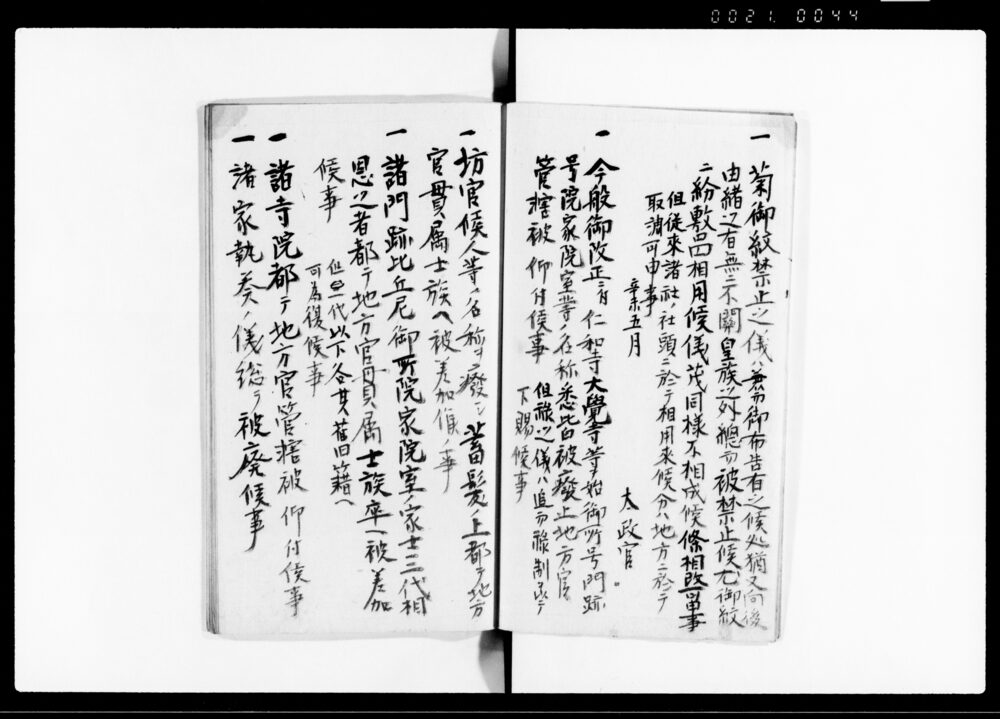 0021 0044
一 菊御紋禁止之儀ハ兼而御布告有之候処猶又向後
由緒之有無ニ不關皇族之外總而被禁止候尤御紋
ニ紛敷品相用候儀茂同様不相成候條相改可申事
但従来諸社ノ社頭ニ於テ相用来候分ハ地方ニ於テ
取消可申事
辛未五月
太政官
一 今般御改正ニ付仁和寺大覺寺等ヲ始御所号門跡
号院家院室等ノ名称悉皆被廢止地方官
管轄被仰付候事
但祿之儀ハ追而祿制ニ依テ
下賜候事
一 坊官候人等ノ名称ヲ廢シ蓄髪ノ上都テ地方
官貫属士族ヘ被差加候事
一 諸門跡比丘尼御所院家院室ノ家士三代相
恩之者都テ地方官貫属士族卒ヘ被差加
候事
但二代以下各其舊籍ヘ
可為復候事
一 諸寺院都テ地方官管轄被仰付候事
一 諸家執奏ノ儀総テ被廃候事